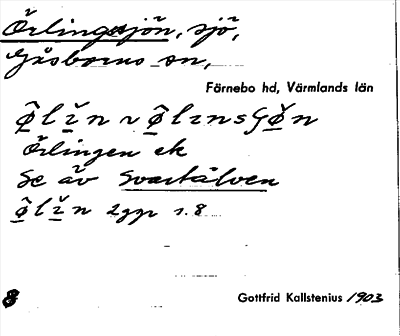 Örlingsjön, sjö,
Gåsborns sn,
Färnebo hd, Värmlands län
Örlingen ek
Se äv Svartälven
2 ggr s. 8
8 Gottfrid Kallstenius 1903